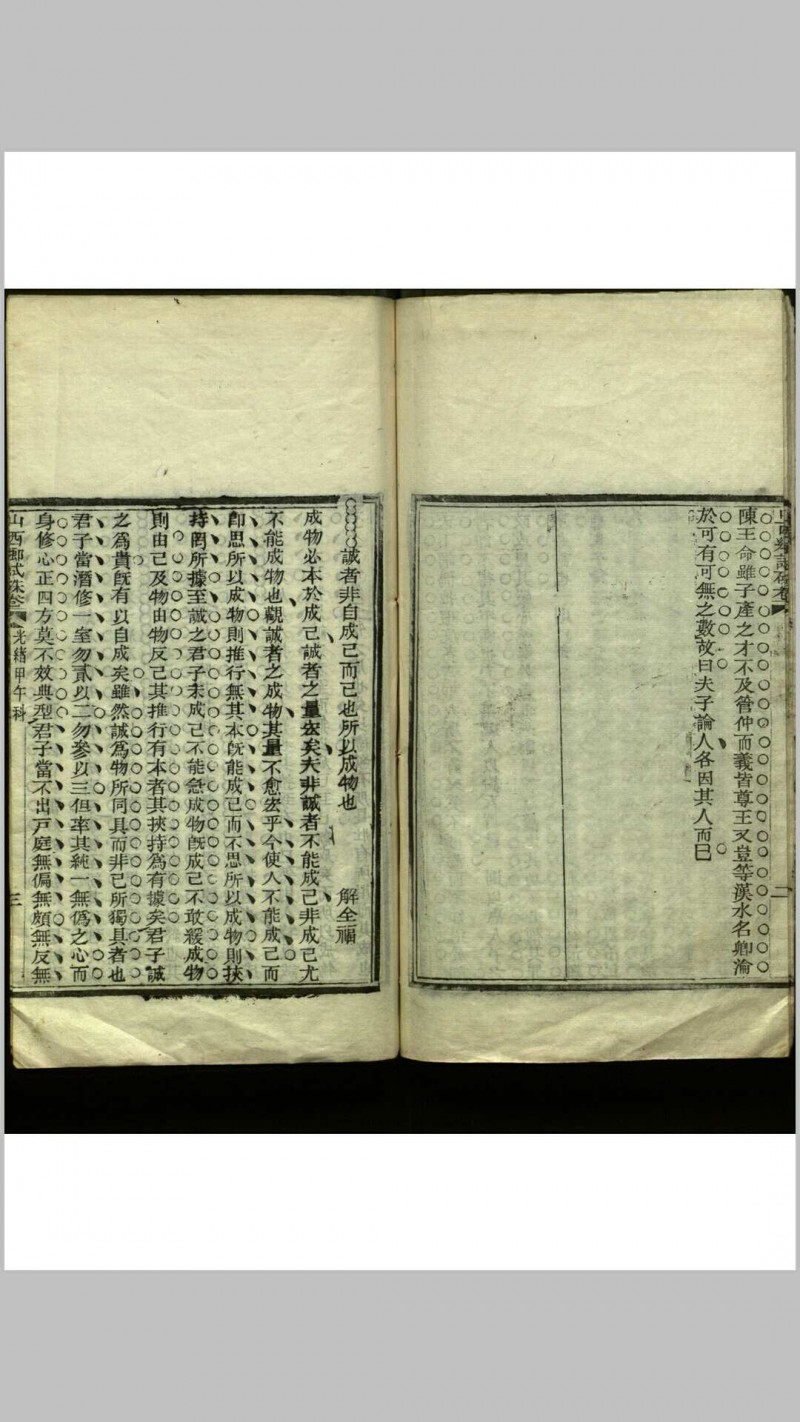 陳王命雖子產之才不及管仲而義皆尊王又豈等漢水名卿淪
於可有可無之數故曰夫子論人各因其人而已
二
誠者非自成己而已也所以成物也　解全福
成物必本於成己誠者之量宏矣夫非誠者不能成己非成己尤
不能成物也觀誠者之成物其量不愈宏乎今使人不能成己而
即思所以成物則推行無其本既能成己而不思所以成物則挾
持罔所據至誠之君子未成己不能急成物既成己不敢緩成物
則由己及物由物反己其推行有本者其挾持為有據矣君子誠
之為貴既有以自成矣雖然誠為物所同具而非己所獨具者也
君子當潛修一室勿貳以二勿參以三但率其純一無僞之心而
身修心正四方莫不效典型君子當不出戸庭無偏無頗無反無
山西鄉試硃卷　光緒甲午科　三